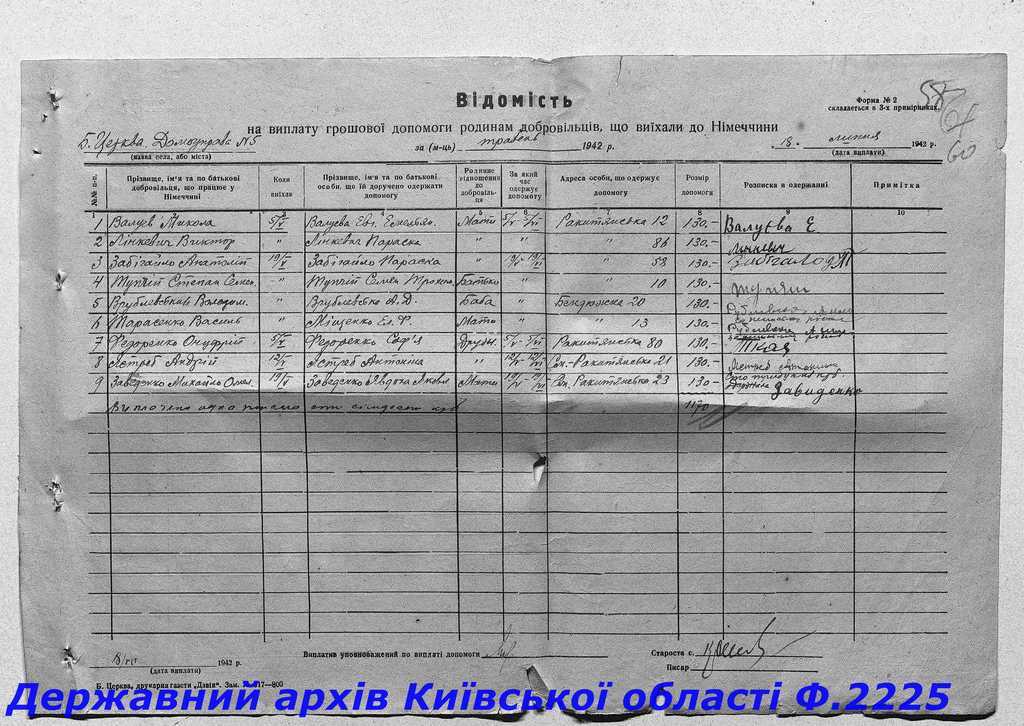 58
64
60
Форма № 2
складається в 3-х примірниках.
Відомість
на виплату грошової допомоги родинам добровільців, що виїхали до Німеччини
Б. Церква. Домоуправа №5
(назва села, або міста)
за (м-ць) травень 1942 р.
18. липня 1942 р.
(дата виплати)
№№ п-п. Прізвище, ім'я та по батькові добровільця, що працює у Німеччині Коли виїхав Прізвище, ім'я та по батькові особи, що їй доручено одержати допомогу Родинне відношення до добровільця За який час одержує допомогу Адреса особи, що одержує допомогу Розмір допомоги Розписка в одержанні Примітка
1 Валуєв Микола 5/V Валуєва Евг. Мати 5/V-5/VI Ракитянська 12 130.- Валуєва Е
2 Лінкевич Виктор " Лінкевич Параска " " " 86 130.- Линкевич
3 Забігайло Анатолій 19/V Забігайло Параска " 19/V-19/VI " 58 130.-
4 Тупчій Степан Семен. " Тупчій Семен Батько " " 10 130.-
5 Врублевський Володим. " Врублевсько Баба " Бендюжна 20 130.-
6 Тарасенко Василь " Міщенко Ел. Ф. Мати " " 13 130.-
7 Федоренко Онуфрій 5/V Федоренко Соф'я Дружн. 5/V-5/VI Ракитянська 80 130.-
8 Ястреб Андрій 12/V Ястреб Антоніна " 12/V-12/VI Сп.-Ракитянська 21 130.-
9 Заведенко Михайло 19/V Заведенко Явдоха Яковл. Мати 19/V-19/VI Сп. Ракитянська 23 130.- Завиденко
Виплочено одна тисяча сто сімдесят крб 1170
8/VII 1942 р.
(дата виплати)
Виплатив уповноважений по виплаті допомоги
Староста с.
Писар
Б. Церква, друкарня газети „Дзвін“. Зам. 317—800
Державний архів Київської області Ф.2225